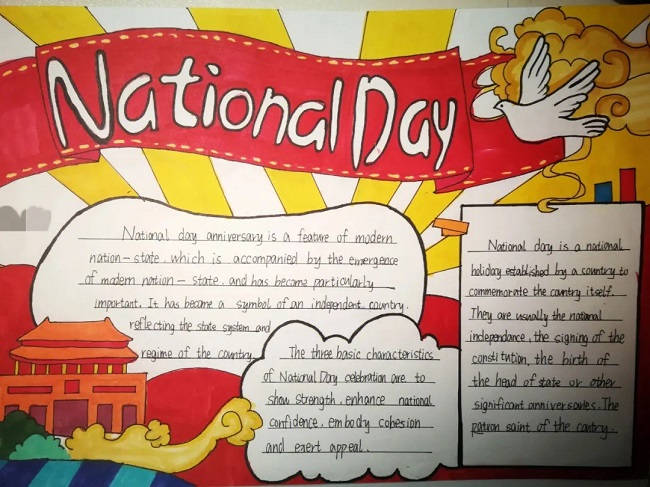 National Day
National day anniversary is a feature of modern
nation-state, which is accompanied by the emergence
of modern nation-state, and has become particularly
important. It has become a symbol of an independent country,
reflecting the state system and
regime of the country.
The three basic characteristics
of National Day celebration are to
show strength, enhance national
confidence, embody cohesion
and exert appeal.
National day is a national
holiday established by a country to
commemorate the country itself.
They are usually the national
independance, the signing of the
constitution, the birth of
the head of state or other
significant anniversaries. The
patron saint of the cantry.